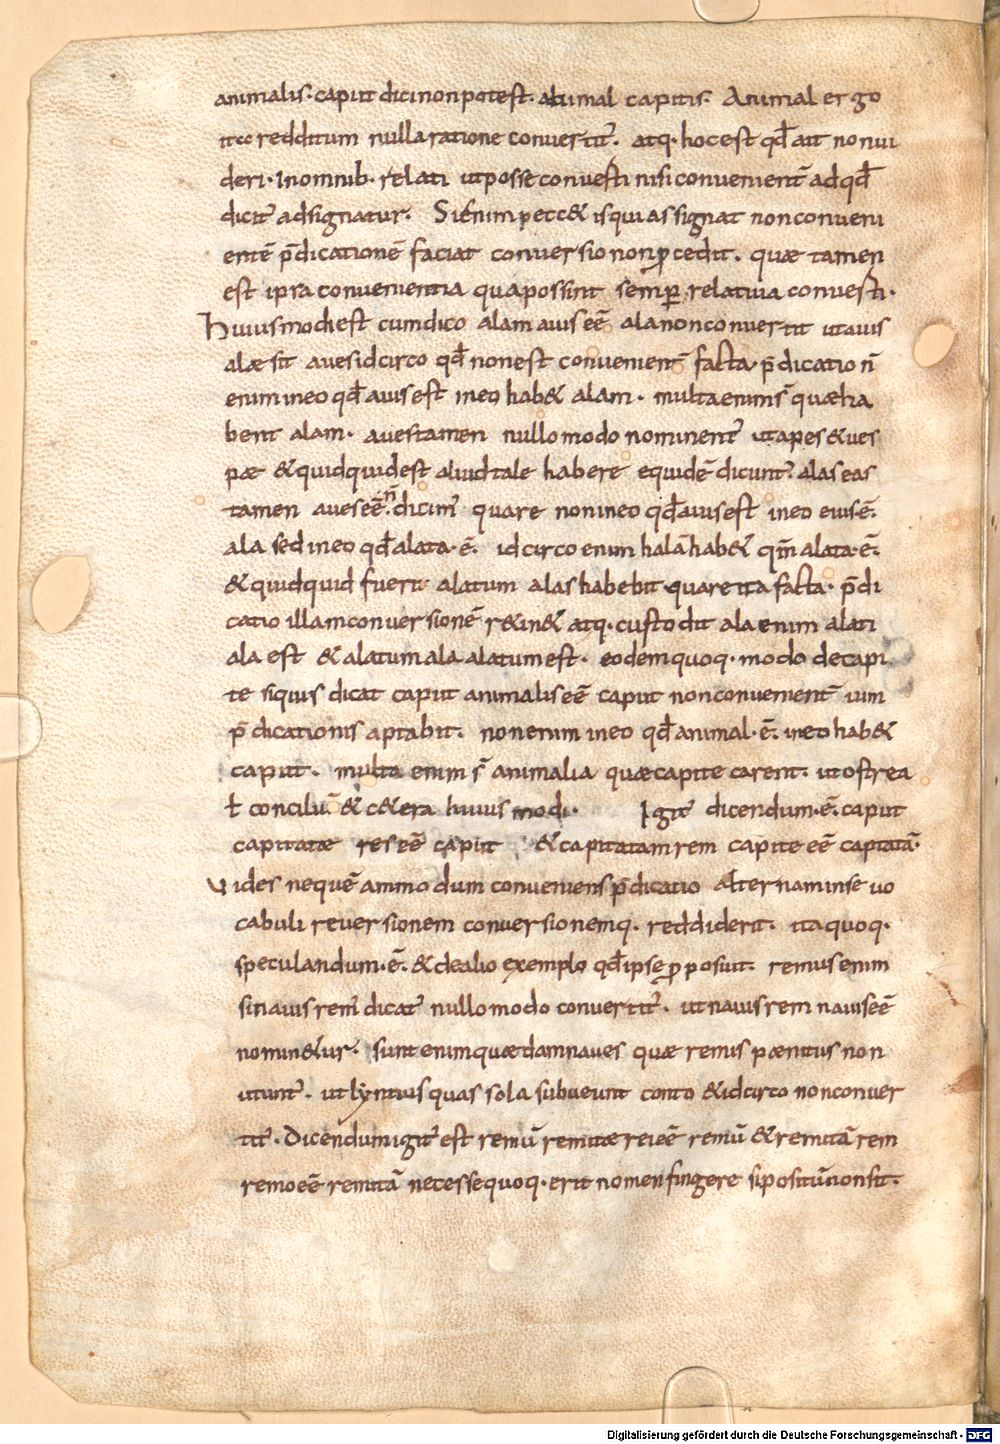 animalis· caput dici non potest· animal capitis· Animal ergo
ita redditum nulla ratione convertit̄· atq· hoc est qđ ait non vi
deri· in omnib· relati ut posse converti nisi convenient̄ ad qđ
dicit̄ adsignatur· Si enim pecc& is qui assignat non conveni
entē p̄dicationē faciat conversio non ꝓcedit· quae tamen
est ipsa convenientia qua possint semꝑ relativa converti·
Huiusmodi est cum dico alam avis eē ala non convertit ut avis
alae sit aves idcirco qđ non est convenient̄ facta p̄dicatio n̄
enim in eo qđ avis est in eo hab& alam· multa enim s̄ quae ha
bent alam· aves tamen nullo modo nominent̄ ut apes & ves
pae & quidquid est aliud tale habere equidē dicunt̄· alas eas
tamen aves eē n̄ dicim̄ quare non in eo qđ avis est in eo eius·ē·
ala sed in eo qđ alata·ē· idcirco enim halā hab& qm̄ alata·ē·
& quidquid fuerit alatum alas habebit· quare ita facta· p̄di
catio illam conversionē r&in& atq· custodit ala enim alati
ala est & alatum ala alatum est· eodem quoq· modo de capi
te siquis dicat caput animalis eē caput non convenient̄ vim
p̄dicationis aptabit· non enim in eo qđ animal·ē· in eo hab&
caput· multa enim s̄ animalia quae capite carent· ut ostrea
ł conciliū & c&era huius modi· Igit̄ dicendum·ē· caput
capitatae rei eē caput & capitatam rem capite eē captatā·
Vides nequē ammodum conveniens p̄dicatio alternam in se vo
cabuli reversionem conversionemq· reddiderit· ita quoq·
speculandum·ē· & de alio exemplo qđ ipse ꝓposuit· remus enim
si navis rem̄ dicat̄ nullo modo convertit̄· ut navis rem navis eē
nomin&ur· sunt enim quaedam naves quae remis paenitus non
utunt̄· ut lyntrius quas sola subveunt conto & idcirco non conver
tit̄· Dicendum igit̄ est remū remitae rei eē remū & remitā rem
remo eē remitā necesse quoq· erit nomen fingere si positū non sit·
Digitalisierung gefördert durch die Deutsche Forschungsgemeinschaft - DFG